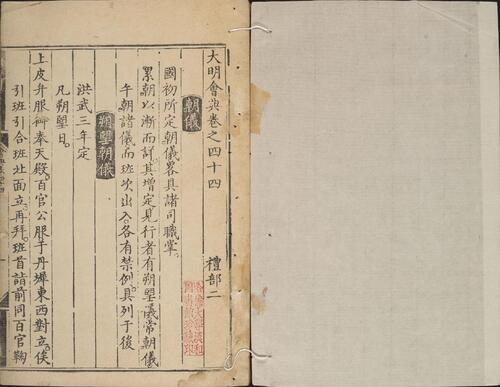 大明會典卷之四十四
禮部二
朝儀
國初所定朝儀畧具諸司職掌
累朝以漸而詳其增定見行者有朔望儀常朝儀
午朝諸儀而班次出入各有禁例具列于後
朔望朝儀
洪武三年定
凡朔望日
上皮弁服御奉天殿百官公服于丹墀東西對立俟
引班引合班北面立再拜班首詣前同百官鞠